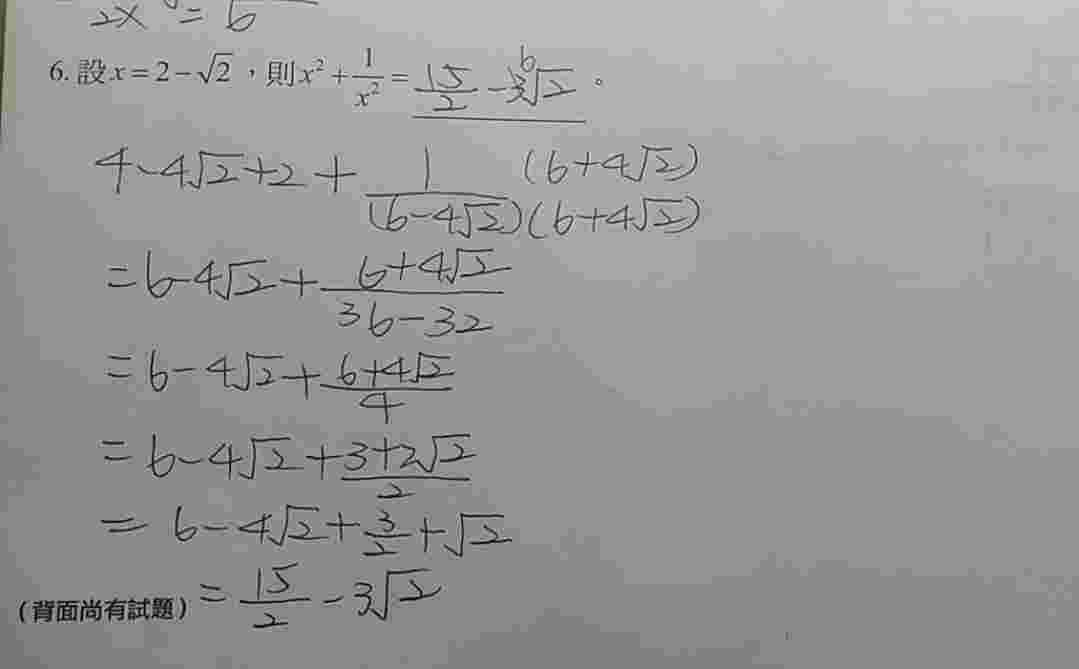 2x = 6
6. 設 x = 2 - √2 ，則 x² + 1/x² = 15/2 - 3√2 。
4 - 4√2 + 2 + 1 (6+4√2) / (6-4√2)(6+4√2)
= 6 - 4√2 + (6+4√2)/(36-32)
= 6 - 4√2 + (6+4√2)/4
= 6 - 4√2 + (3+2√2)/2
= 6 - 4√2 + 3/2 + √2
(背面尚有試題) = 15/2 - 3√2